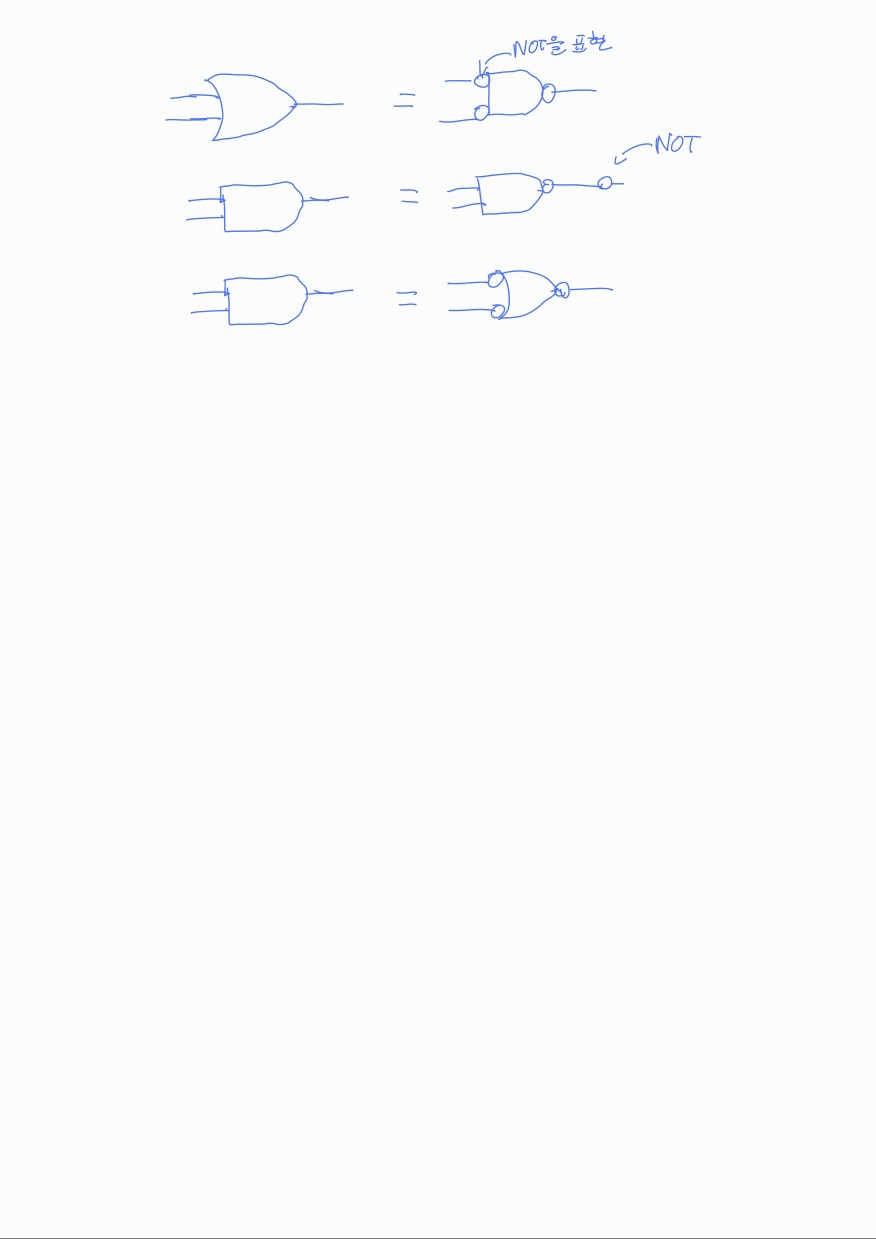 NOT을 표현
NOT